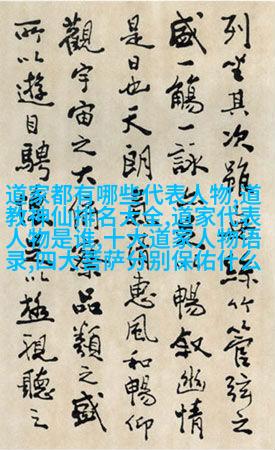 列坐其次雖絲竹管弦之
盛一觴一詠暢敘幽情
是日也天朗惠風和暢仰
觀宇宙之大品類之盛
所以遊目騁以極視聽之
道家都有哪些代表人物,道
教神仙排名大全,道家代表
人物是谁,十大道家人物语
录,四大菩萨分别保佑什么